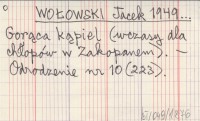 WOŁOWSKI Jacek 1949...
Gorąca kąpiel (wczasy dla
chłopów w Zakopanem). —
Odrodzenie nr 10 (223).